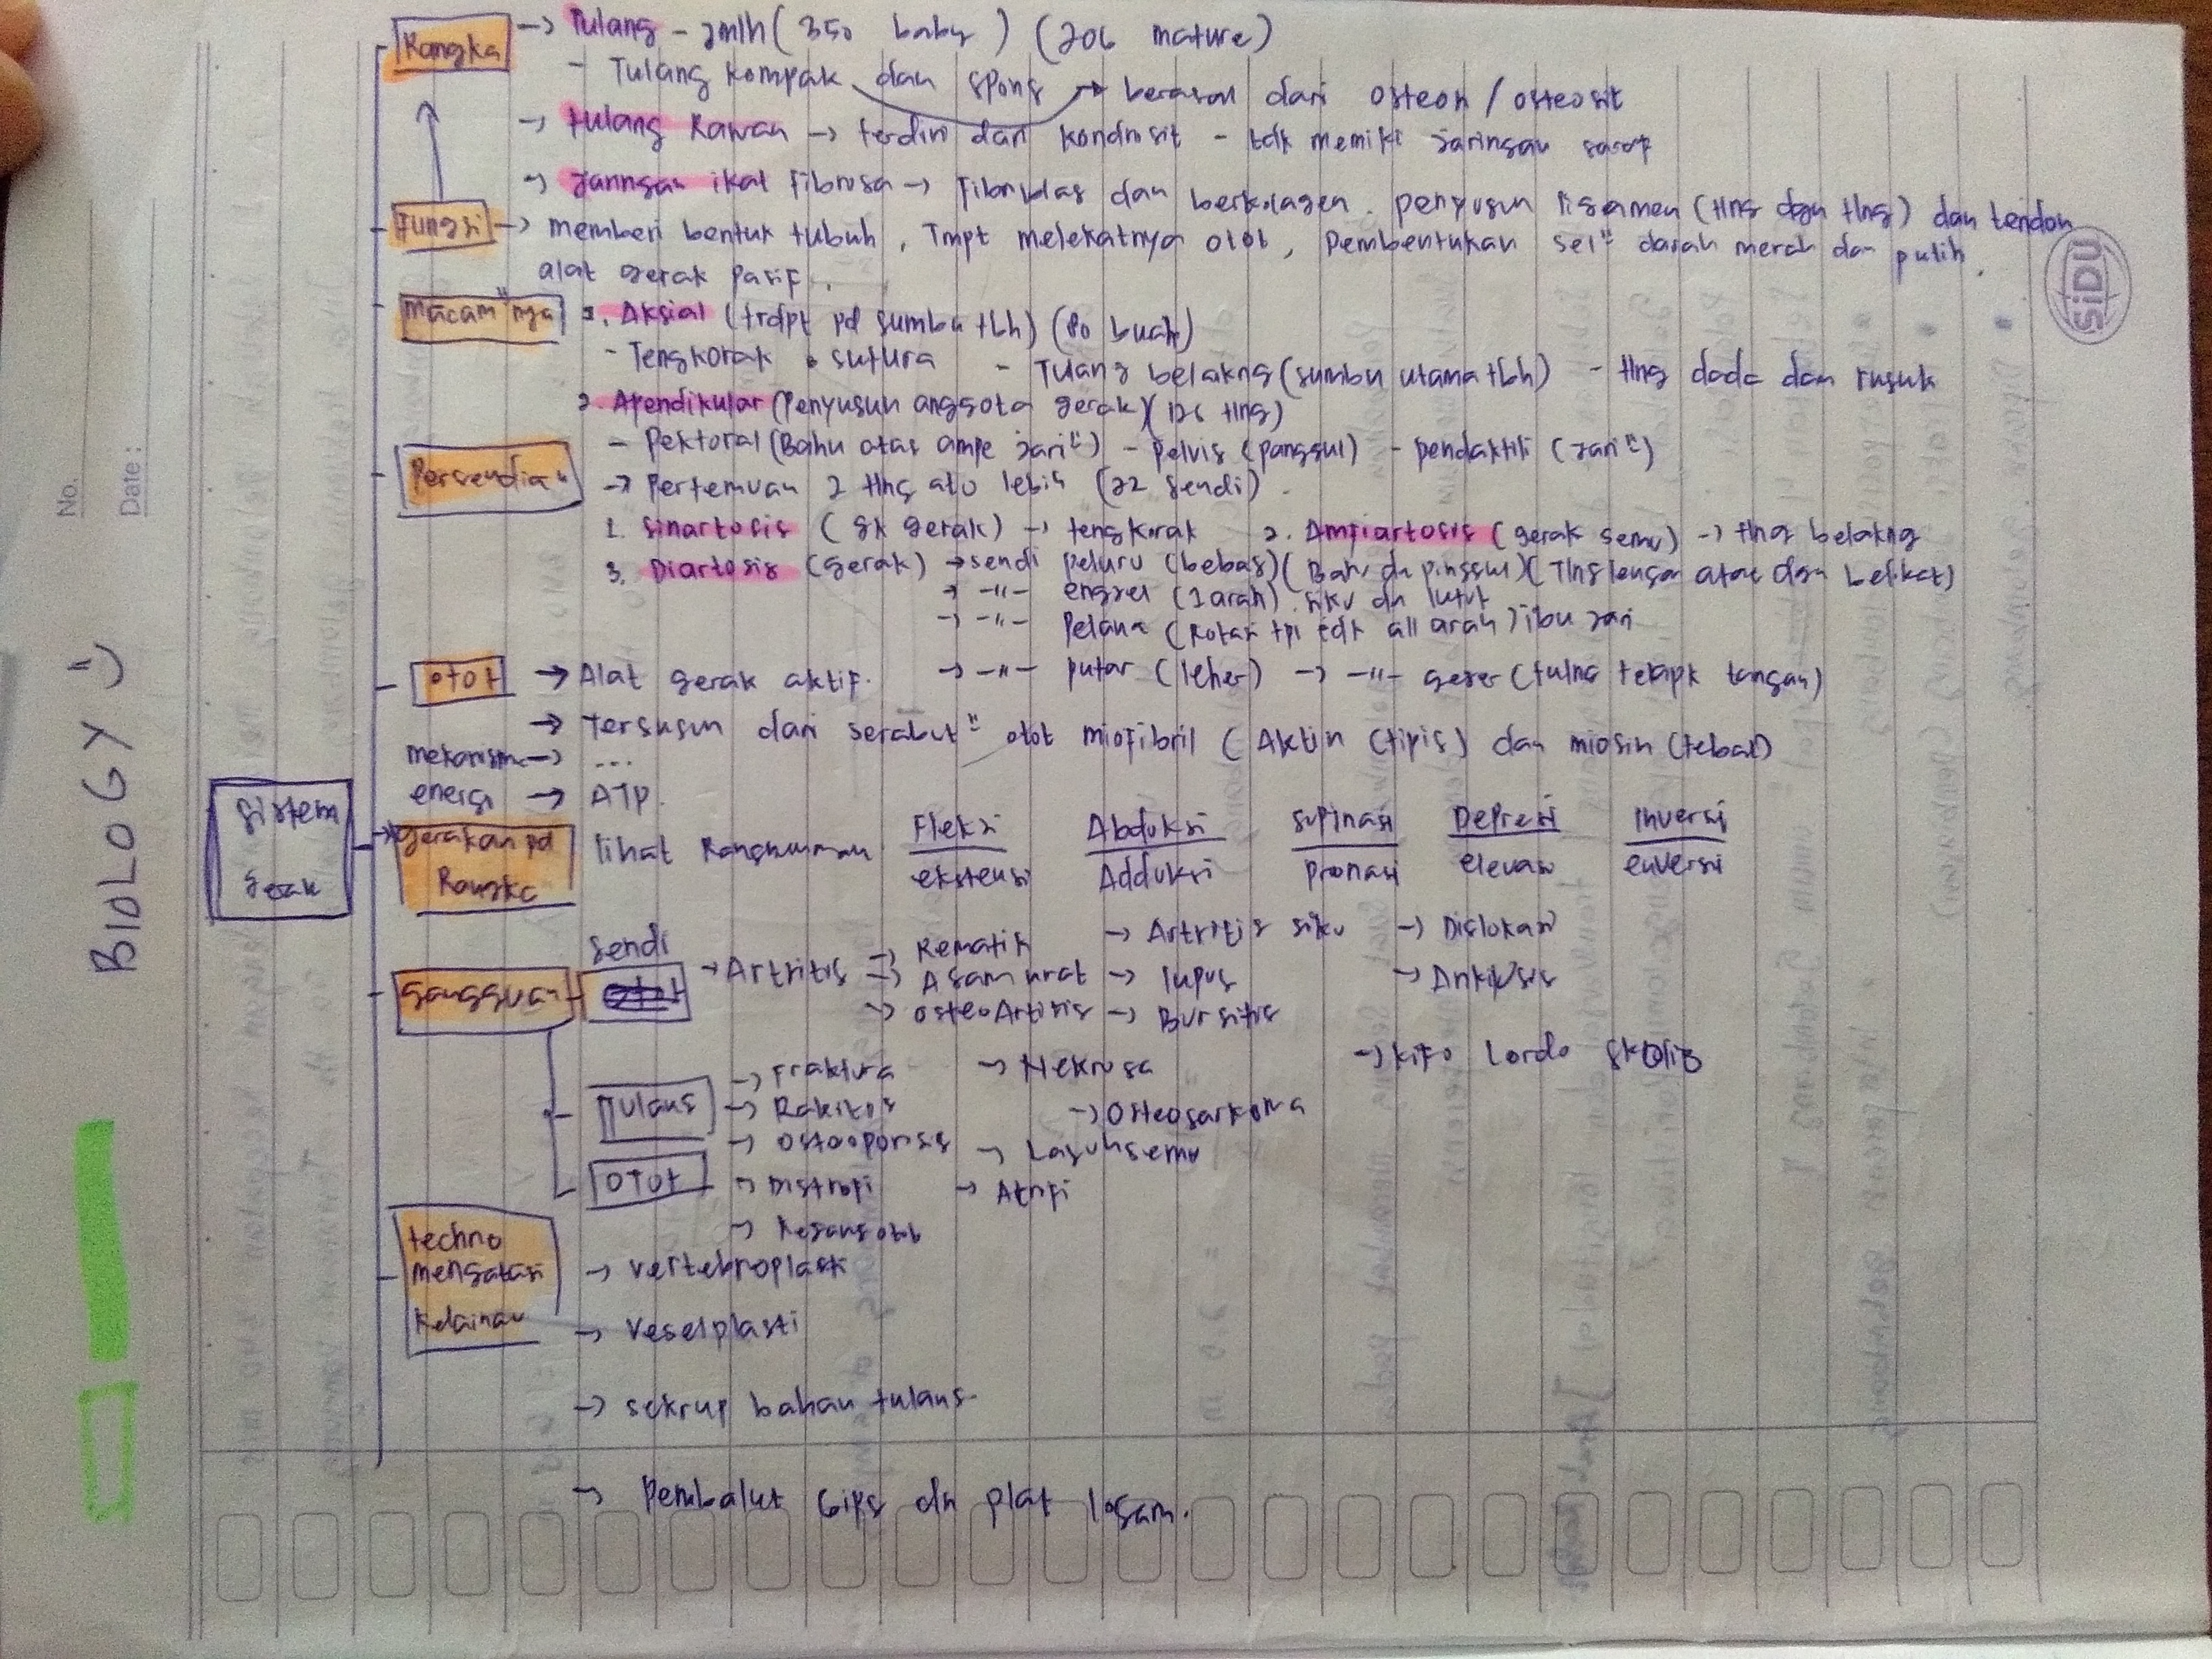 No.
Date :
BIOLOGY
SiDU
Sistem
Gerak
Rangka
→ Tulang - Jmlh (350 baby) (206 mature)
- Tulang kompak dan spons → berasal dari osteon / osteosit
→ tulang Rawan → terdiri dari kondrosit - tdk memiki Jaringan saraf
→ Jaringan ikat Fibrosa → Fibroblas dan berkolagen. penyusun ligamen (tlng dgn tlng) dan tendon
Fungsi → memberi bentuk tubuh, Tmpt melekatnya otot, Pembentukan sel" darah merah dan putih,
alat gerak pasif.
Macam"nya 1. Aksial (trdpt pd sumbu tbh) (80 buah)
- Tengkorak • sutura - Tulang belakng (sumbu utama tbh) - tlng dada dan rusuk
2. Apendikular (Penyusun anggota gerak) (126 tlng)
- Pektoral (Bahu atas ampe jari") - pelvis (panggul) - pendaktili (Jari")
Persendian
→ Pertemuan 2 tlng ato lebih (22 sendi)
1. Sinartosis (gk gerak) → tengkorak 2. Amfiartosis (gerak semu) → tlng belakng
3. Diartosis (gerak) → sendi peluru (bebas) (Bahu dn pinggul) (Tlng lengan atas dgn belikat)
→ -"- engsel (1 arah) siku dn lutut
→ -"- Pelana (Rotasi tpi tdk all arah) ibu jari
otot → Alat gerak aktif. → -"- putar (leher) → -"- geser (tulng telapk tangan)
→ Tersusun dari serabut" otot miofibril (Aktin (tipis) dan miosin (tebal)
mekanisme → ...
energi → ATP.
gerakan pd Rangka lihat Rangkuman
Fleksi Abduksi supinasi Depresi Inversi
ekstensi Adduksi pronasi elevasi enversi
Gangguan
Sendi → Artritis → Rematik → Artritis siku → Dislokasi
→ Asam urat → lupus → Ankilosis
→ osteoArtritis → Bursitis
Tulang → Fraktura → Nekrosa → kifo Lordo skolio
→ Rakitos → Osteosarkoma
→ Osteoporosis → Layuhsemu
OTOT → Distrofi → Atrofi
→ Kejang otot
techno mengatasi kelainan
→ vertebroplasti
→ Veselplasti
→ sekrup bahan tulang
→ Pembalut Gips dn plat logam.